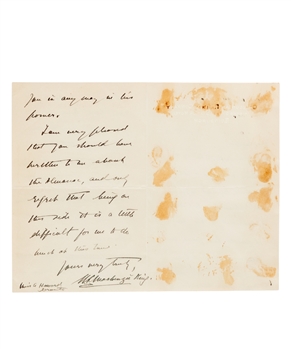 you in any way in his
power.
I am very pleased
that you should have
written to me about
the             , and only
regret that being on
this side it is a little
difficult for me to do
much at this time.
Yours very truly,
W. L. Mackenzie King.